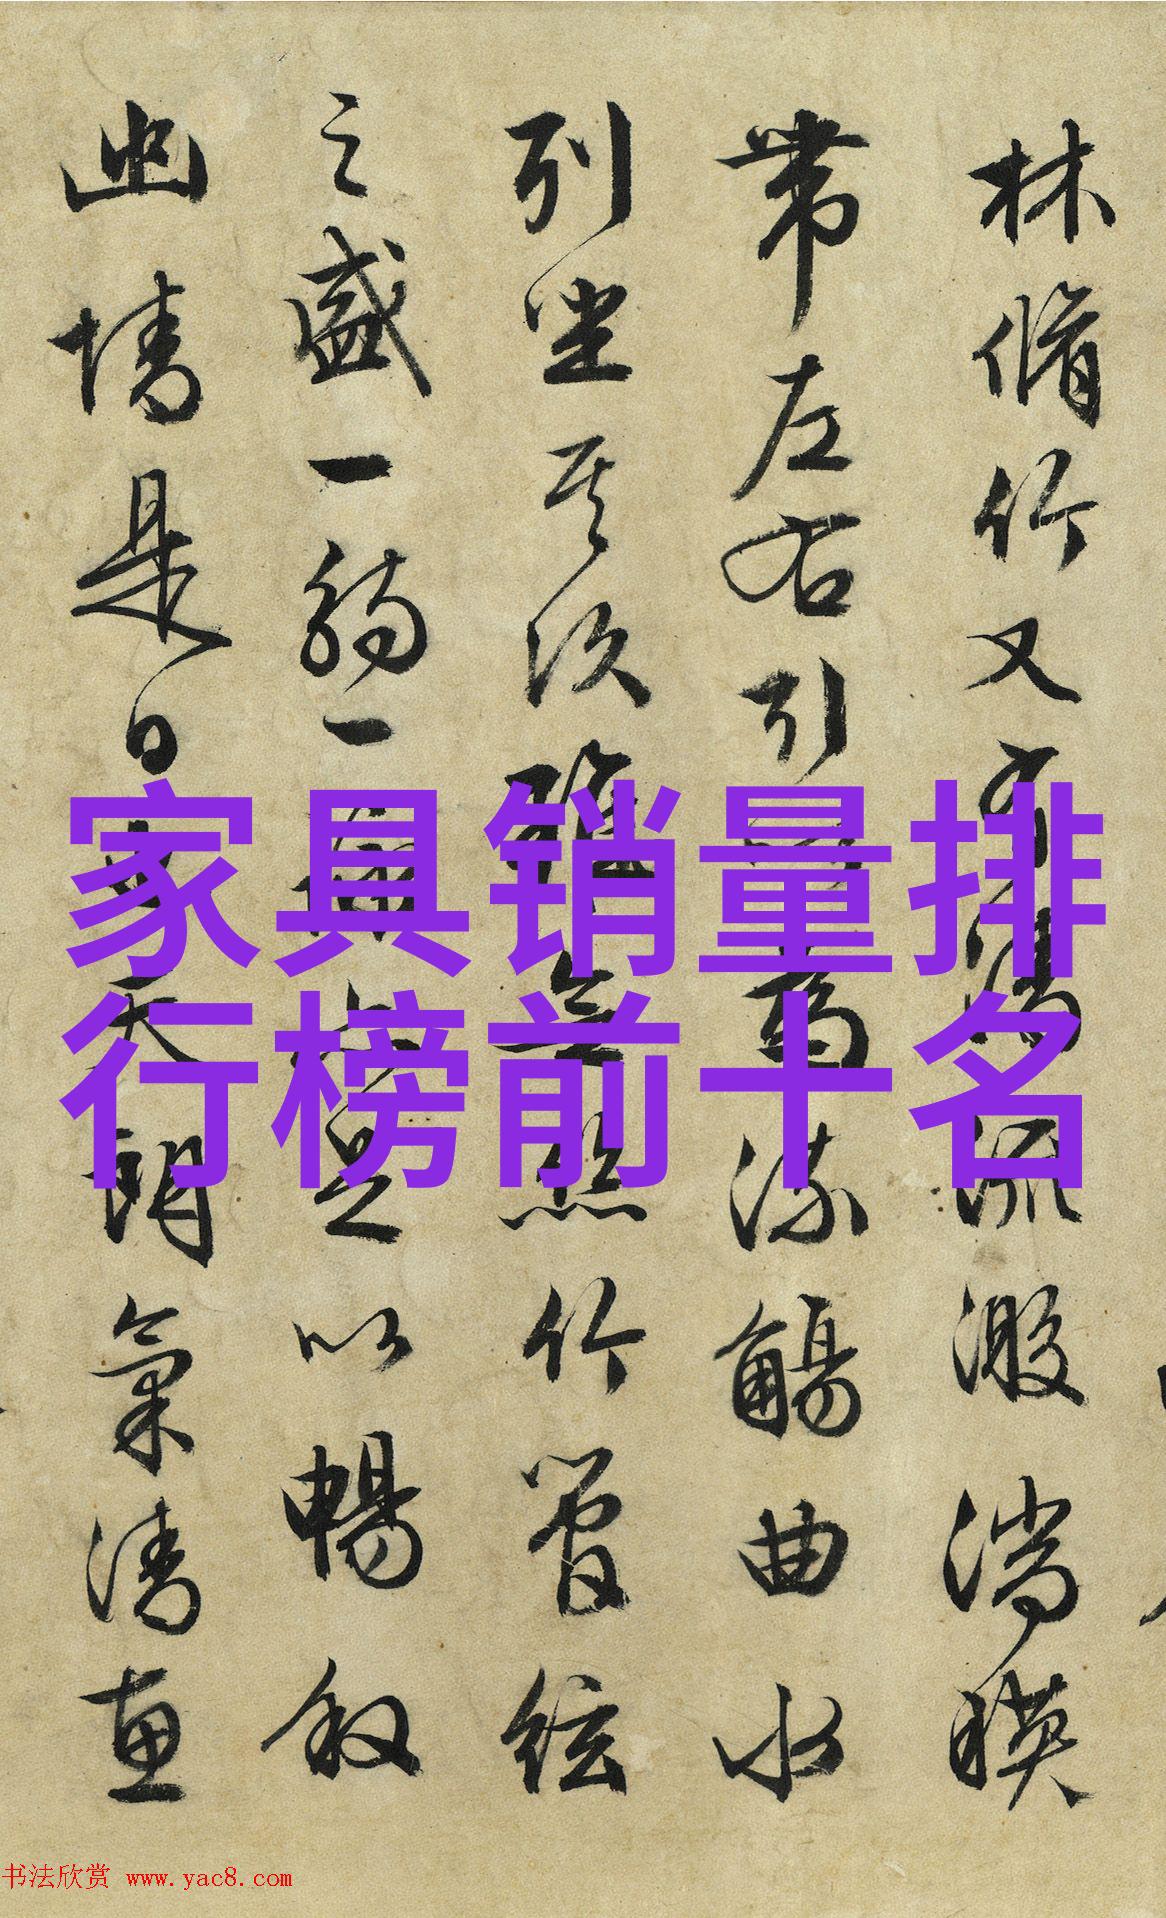 林脩竹又有清流激湍暎
帶左右引以為流觴曲水
列坐其次雖無絲竹管絃
之盛一觴一詠亦足以暢叙
幽情是日也天朗氣清惠
家具销量排
行榜前十名
书法欣赏 www.yac8.com